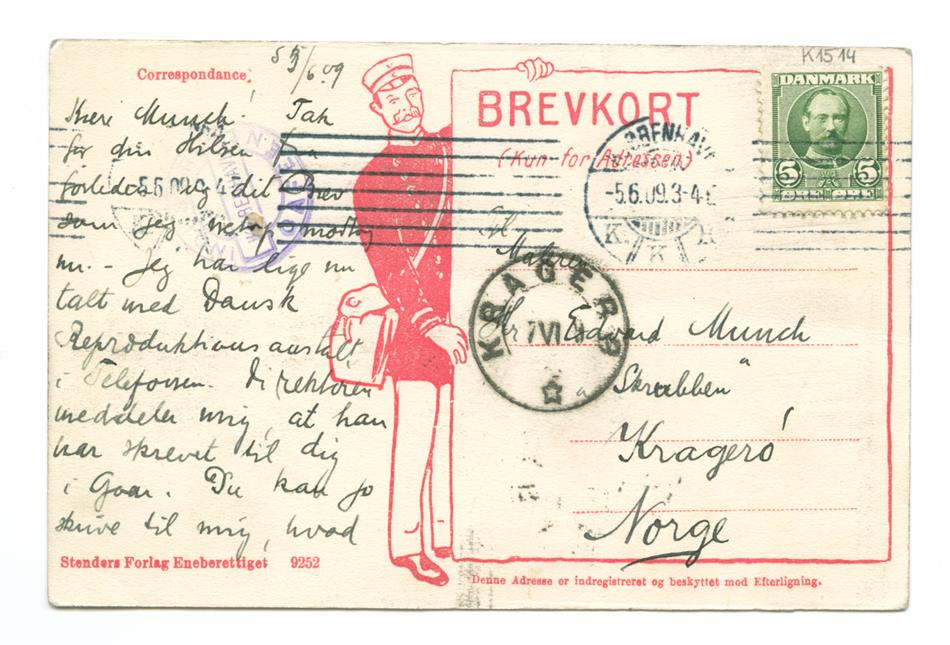 K1514
5/6.09
Correspondance
Kære Munch! Tak
for din Hilsen fra
forleden og dit Brev
som jeg netop modtog
nu. - Jeg har lige nu
talt med Dansk
Reproduktionsanstalt
i Telefonen. Direktøren
meddeler mig, at han
har skrevet til dig
i Gaar. Du kan jo
skrive til mig, hvad
Stenders Forlag Eneberettiget 9252
BREVKORT
(Kun for Adressen)
DANMARK
5 5
ØRE
KJØBENHAVN
5.6.09.3-4
K. K
5.6.09. 4
KRAGERØ
7 VI
Maleren
Hr. Edvard Munch
"Skrubben"
Kragerø
Norge
Denne Adresse er indregistreret og beskyttet mod Efterligning.